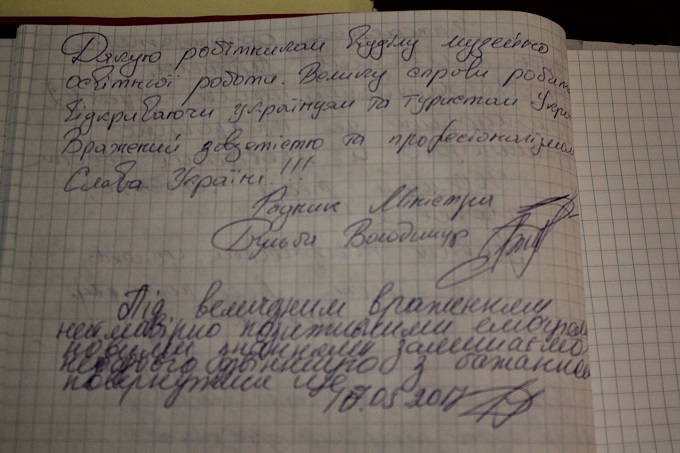 Дякую робітникам відділу музейно
освітньої роботи. Велику справу робите
Відкриваючи українцям та туристам Укра
Вражений завзятістю та професіоналізмом
Слава Україні!!!
Радник Міністра
Володимир
Під величним враженням
неймовірно позитивними емоціями
новими знаннями залишаємо
з бажанням
повернутися ще
17.05.2017